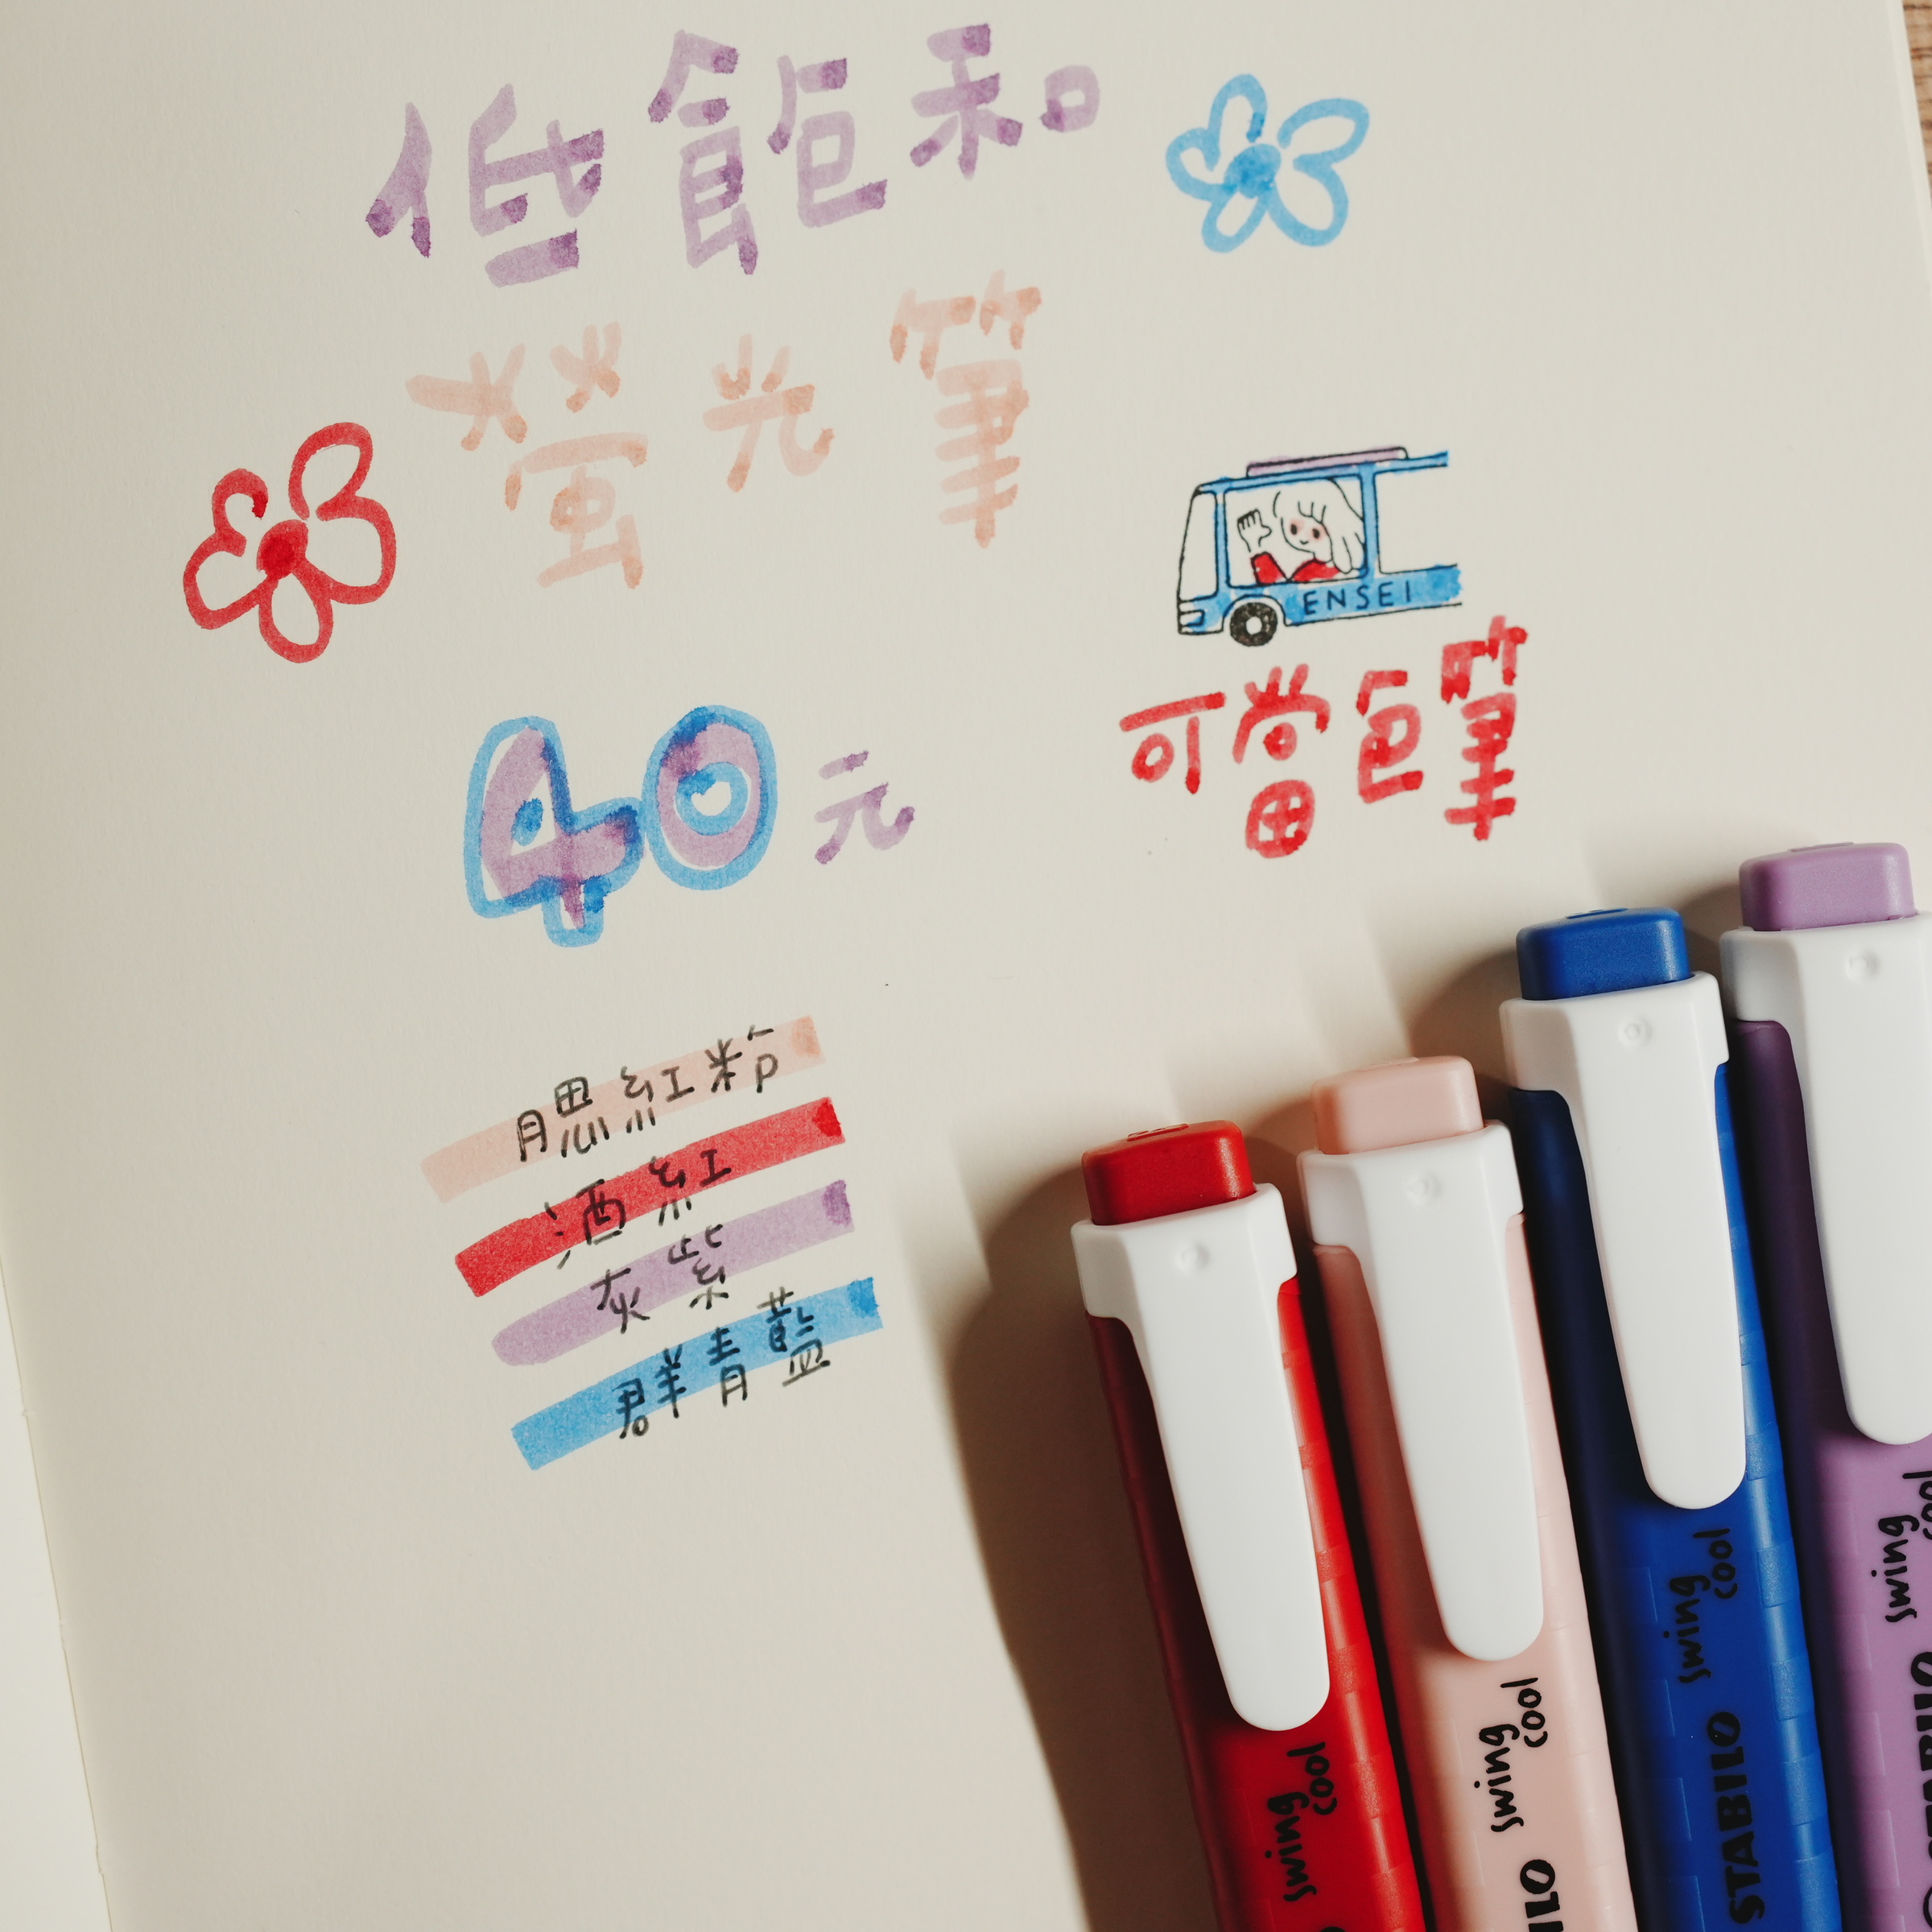 低飽和
螢光筆
ENSEI
可當色筆
40元
腮紅粉
酒紅
灰紫
群青藍
swing cool
swing cool
STABILO swing cool
STABILO swing cool